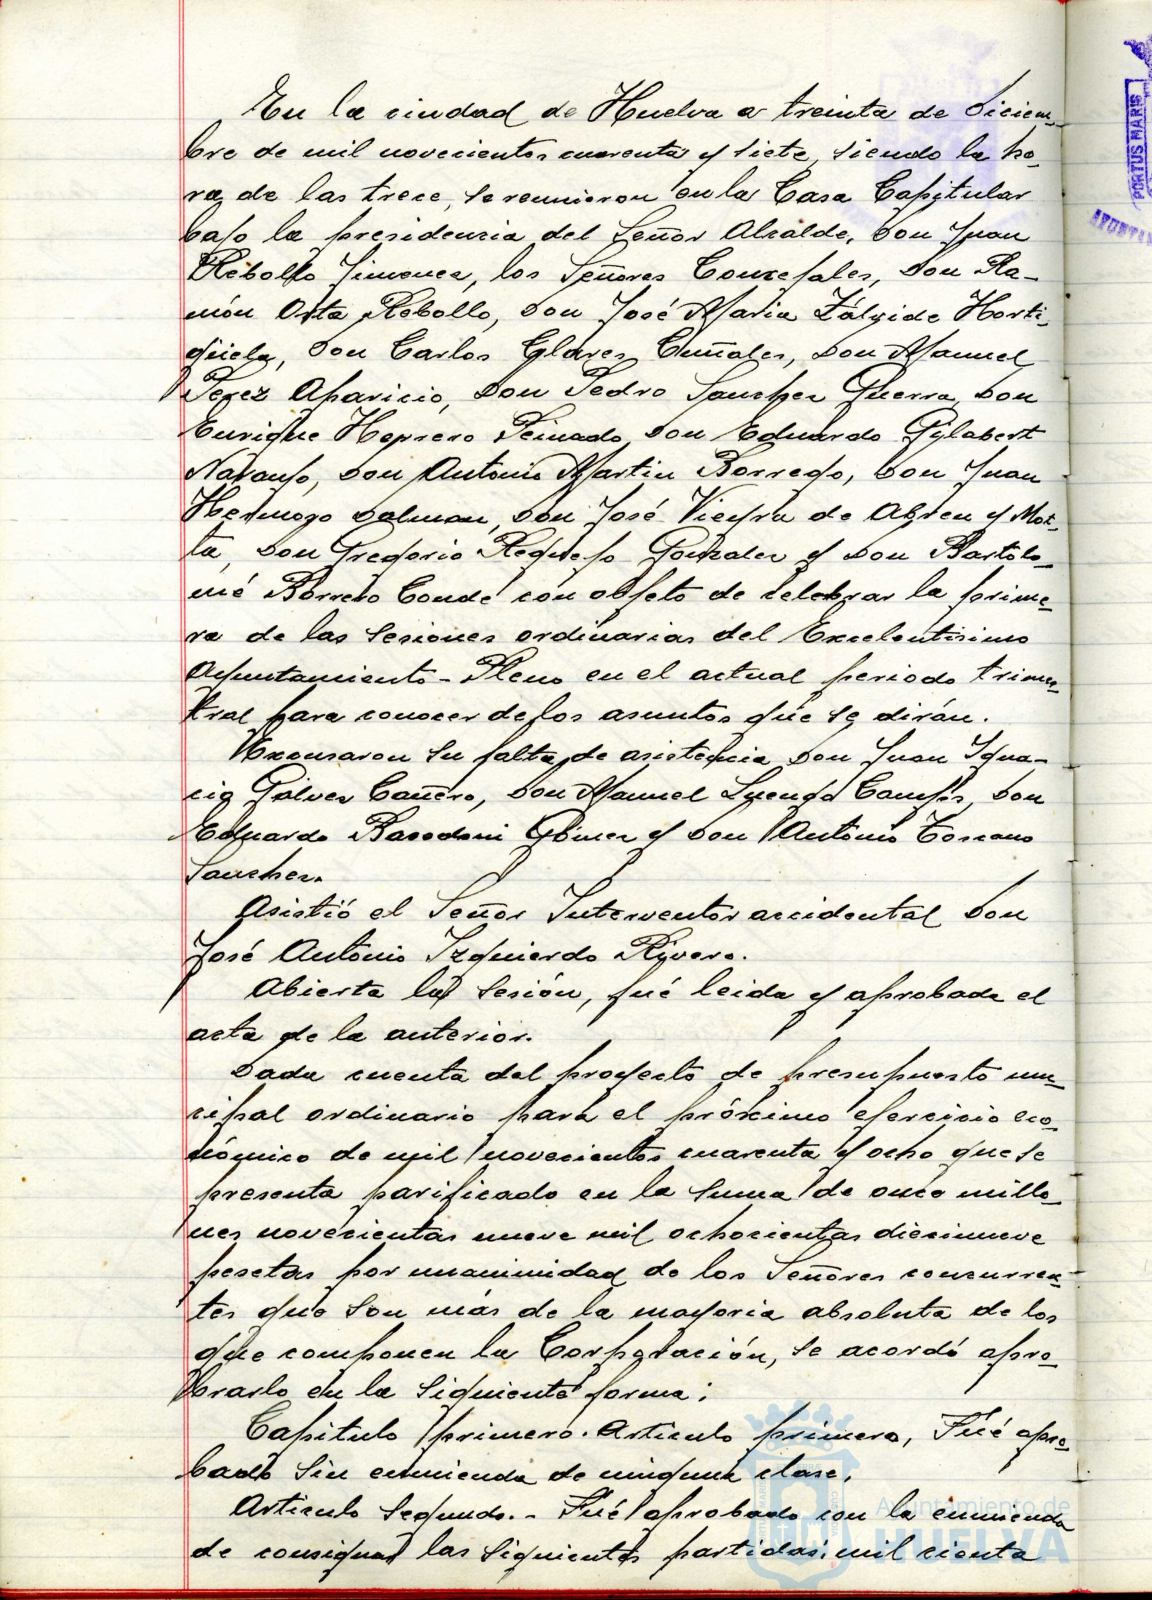 En la ciudad de Huelva a treinta de Diciem-
bre de mil novecientos cuarenta y siete, siendo la ho-
ra de las trece, se reunieron en la Casa Capitular
bajo la presidencia del Señor Alcalde, Don Juan
Rebollo Jimenez, los Señores Concejales, Don Ra-
món Orta Rebollo, Don José Maria Zálvide Horti-
güela, Don Carlos Glarez Don Manuel
Perez Aparicio, Don Pedro Sanchez Guerra, Don
Enrique Herrero Peinado, Don Eduardo Gylabert
Naranjo, Don Antonio Martin Borrego, Don Juan
Hermozo Dolman, Don José Vieyra de Abreu y Mot-
ta, Don Gregorio Requejo Gonzalez y Don Bartolo-
mé Borrero Conde con objeto de celebrar la prime-
ra de las sesiones ordinarias del Excelentisimo
Ayuntamiento-Pleno en el actual periodo trimes-
tral para conocer de los asuntos que se dirán.
Excusaron su falta de asistencia Don Juan Igna-
cio Galvez Cañero, Don Manuel Luengo Campos, Don
Eduardo Bacedoni Gómez y Don Antonio Toscano
Sanchez.
Asistió el Señor Interventor accidental Don
José Antonio Izquierdo Rivero.
Abierta la sesión, fué leida y aprobada el
acta de la anterior.
Dada cuenta del proyecto de presupuesto mu-
cipal ordinario para el próximo ejercicio eco-
nómico de mil novecientos cuarenta y ocho que se
presenta parificado en la suma de once millo-
nes novecientas nueve mil ochocientas diecinueve
pesetas por unanimidad de los Señores concurren-
tes que son más de la mayoria absoluta de los
que componen la Corporación, se acordó apro-
brarlo en la siguiente forma:
Capitulo primero. Articulo primero, Fué apro-
bado sin enmienda de ninguna clase.
Articulo Segundo.- Fué aprobado con la enmienda
de consignar las siguientes partidas: mil cienta
PORTUS MARIS
AYUNTAM
Ayuntamiento de
HUELVA